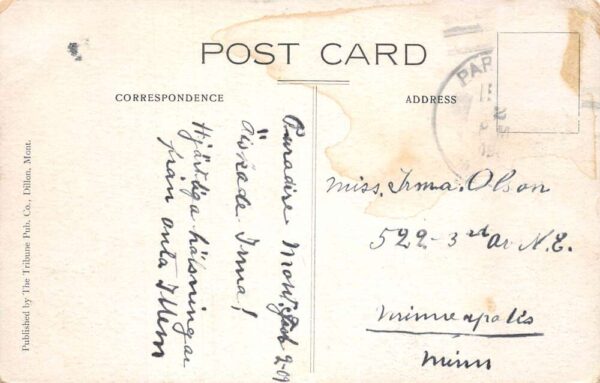 POST CARD
CORRESPONDENCE
ADDRESS
Paradise Mont. Feb 2-09
Älskade Irma!
Hjärtliga hälsningar
från
Miss. Irma. Olson
522-3rd Av N.E.
Minneapolis
Minn
PAR
Published by The Tribune Pub. Co., Dillon, Mont.